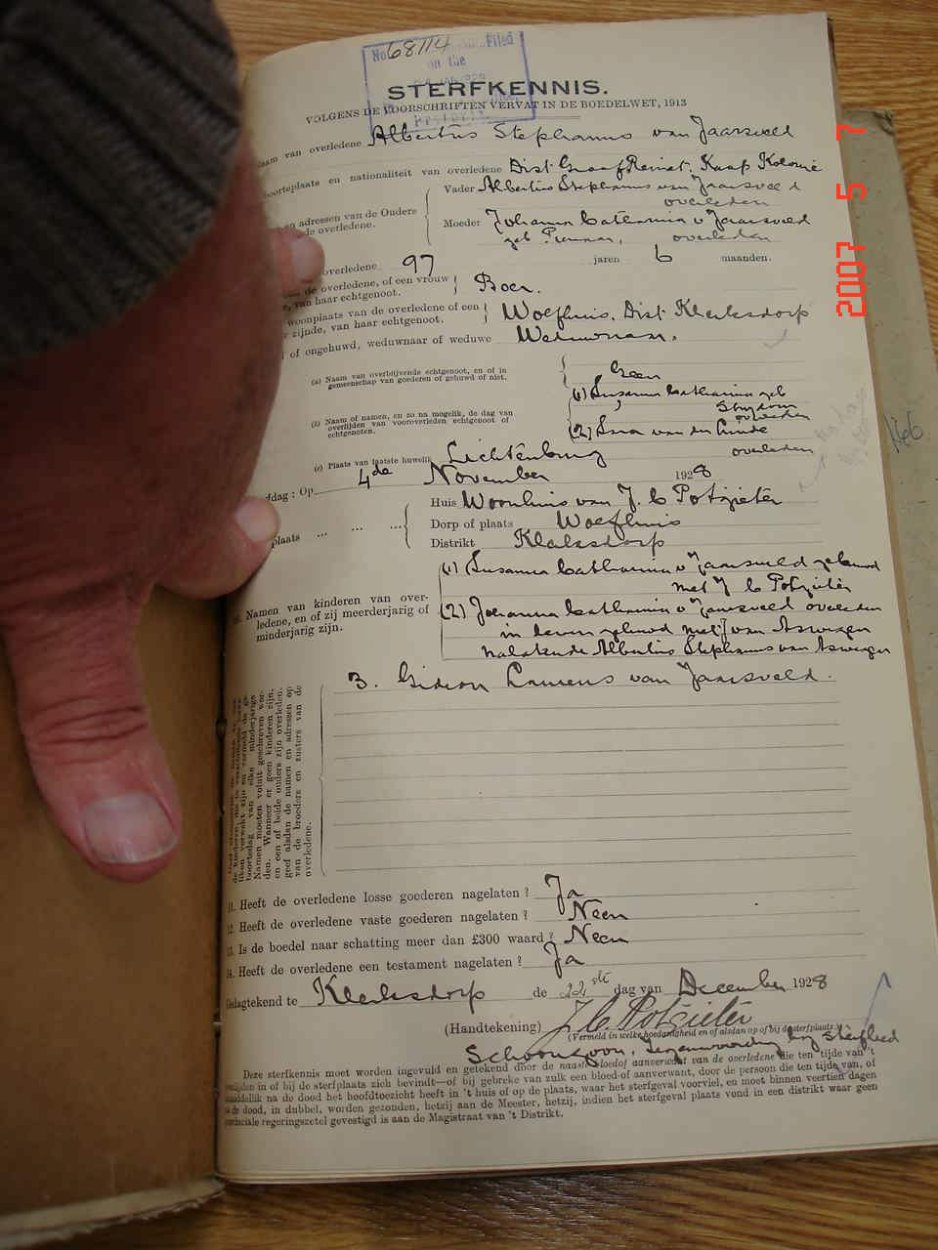 No 68114 Filed
on the
STERFKENNIS.
VOLGENS DE VOORSCHRIFTEN VERVAT IN DE BOEDELWET, 1913
Naam van overledene Albertus Stephanus van Jaarsveld
en nationaliteit van overledene Dist. Graaf Reinet. Kaap Kolonie
en adressen van de Ouders
de overledene.
Vader Albertus Stephanus van Jaarsveld
overleden
Moeder Johanna Catharina v Jaarsveld
geb , overleden
overledene 97 jaren 6 maanden.
de overledene, of een vrouw
, van haar echtgenoot. Boer.
woonplaats van de overledene of een
zijnde, van haar echtgenoot. Wolfhuis. Dist. Klerksdorp
of ongehuwd, weduwnaar of weduwe Weduwnaar.
(a) Naam van overblijvende echtgenoot, en of in
gemeenschap van goederen of gehuwd of niet. Geen
(b) Naam of namen, en zo na mogelik, de dag van
overlijden van vooroverleden echtgenoot of
echtgenoten.
(1) Susanna Catharina geb
Strydom
overleden
(2) van der
overleden
(c) Plaats van laatste huwelik Lichtenburg
ddag : Op 4de November 1928
plaats ... ...
Huis Woonhuis van J. C Potgieter
Dorp of plaats Wolfhuis
Distrikt Klerksdorp
Namen van kinderen van over-
ledene, en of zij meerderjarig of
minderjarig zijn.
(1) Susanna Catharina v Jaarsveld gehuwd
met J C Potgieter
(2) Johanna Catharina v Jaarsveld overleden
in leven gehuwd met J van Aswegen
nalatende Albertus Stephanus van Aswegen
3. Gideon Lourens van Jaarsveld.
Namen moeten voluit geschreven wor-
den. Wanneer er geen kinderen zijn,
en een of beide ouders zijn overleden,
geef alsdan de namen en adressen op
van de broeders en zusters van de
overledene.
11. Heeft de overledene losse goederen nagelaten ? Ja
12. Heeft de overledene vaste goederen nagelaten ? Neen
13. Is de boedel naar schatting meer dan £300 waard ? Neen
14. Heeft de overledene een testament nagelaten ? Ja
Gedagtekend te Klerksdorp de 22ste dag van December 1928
(Handtekening) J. C. Potgieter
(Vermeld in welke hoedanigheid en of alsdan op of bij de sterfplaats.)
Schoonzoon, Tegenwoordig by sterfbed
Deze sterfkennis moet worden ingevuld en getekend door de naaste bloed of aanverwant van de overledene die ten tijde van 't
overlijden in of bij de sterfplaats zich bevindt—of bij gebreke van zulk een bloed- of aanverwant, door de persoon die ten tijde van, of
onmiddellik na de dood het hoofdtoezicht heeft in 't huis of op de plaats, waar het sterfgeval voorviel, en moet binnen veertien dagen
na de dood, in dubbel, worden gezonden, hetzij aan de Meester, hetzij, indien het sterfgeval plaats vond in een distrikt waar geen
provinciale regeringszetel gevestigd is aan de Magistraat van 't Distrikt.
2007 5 7